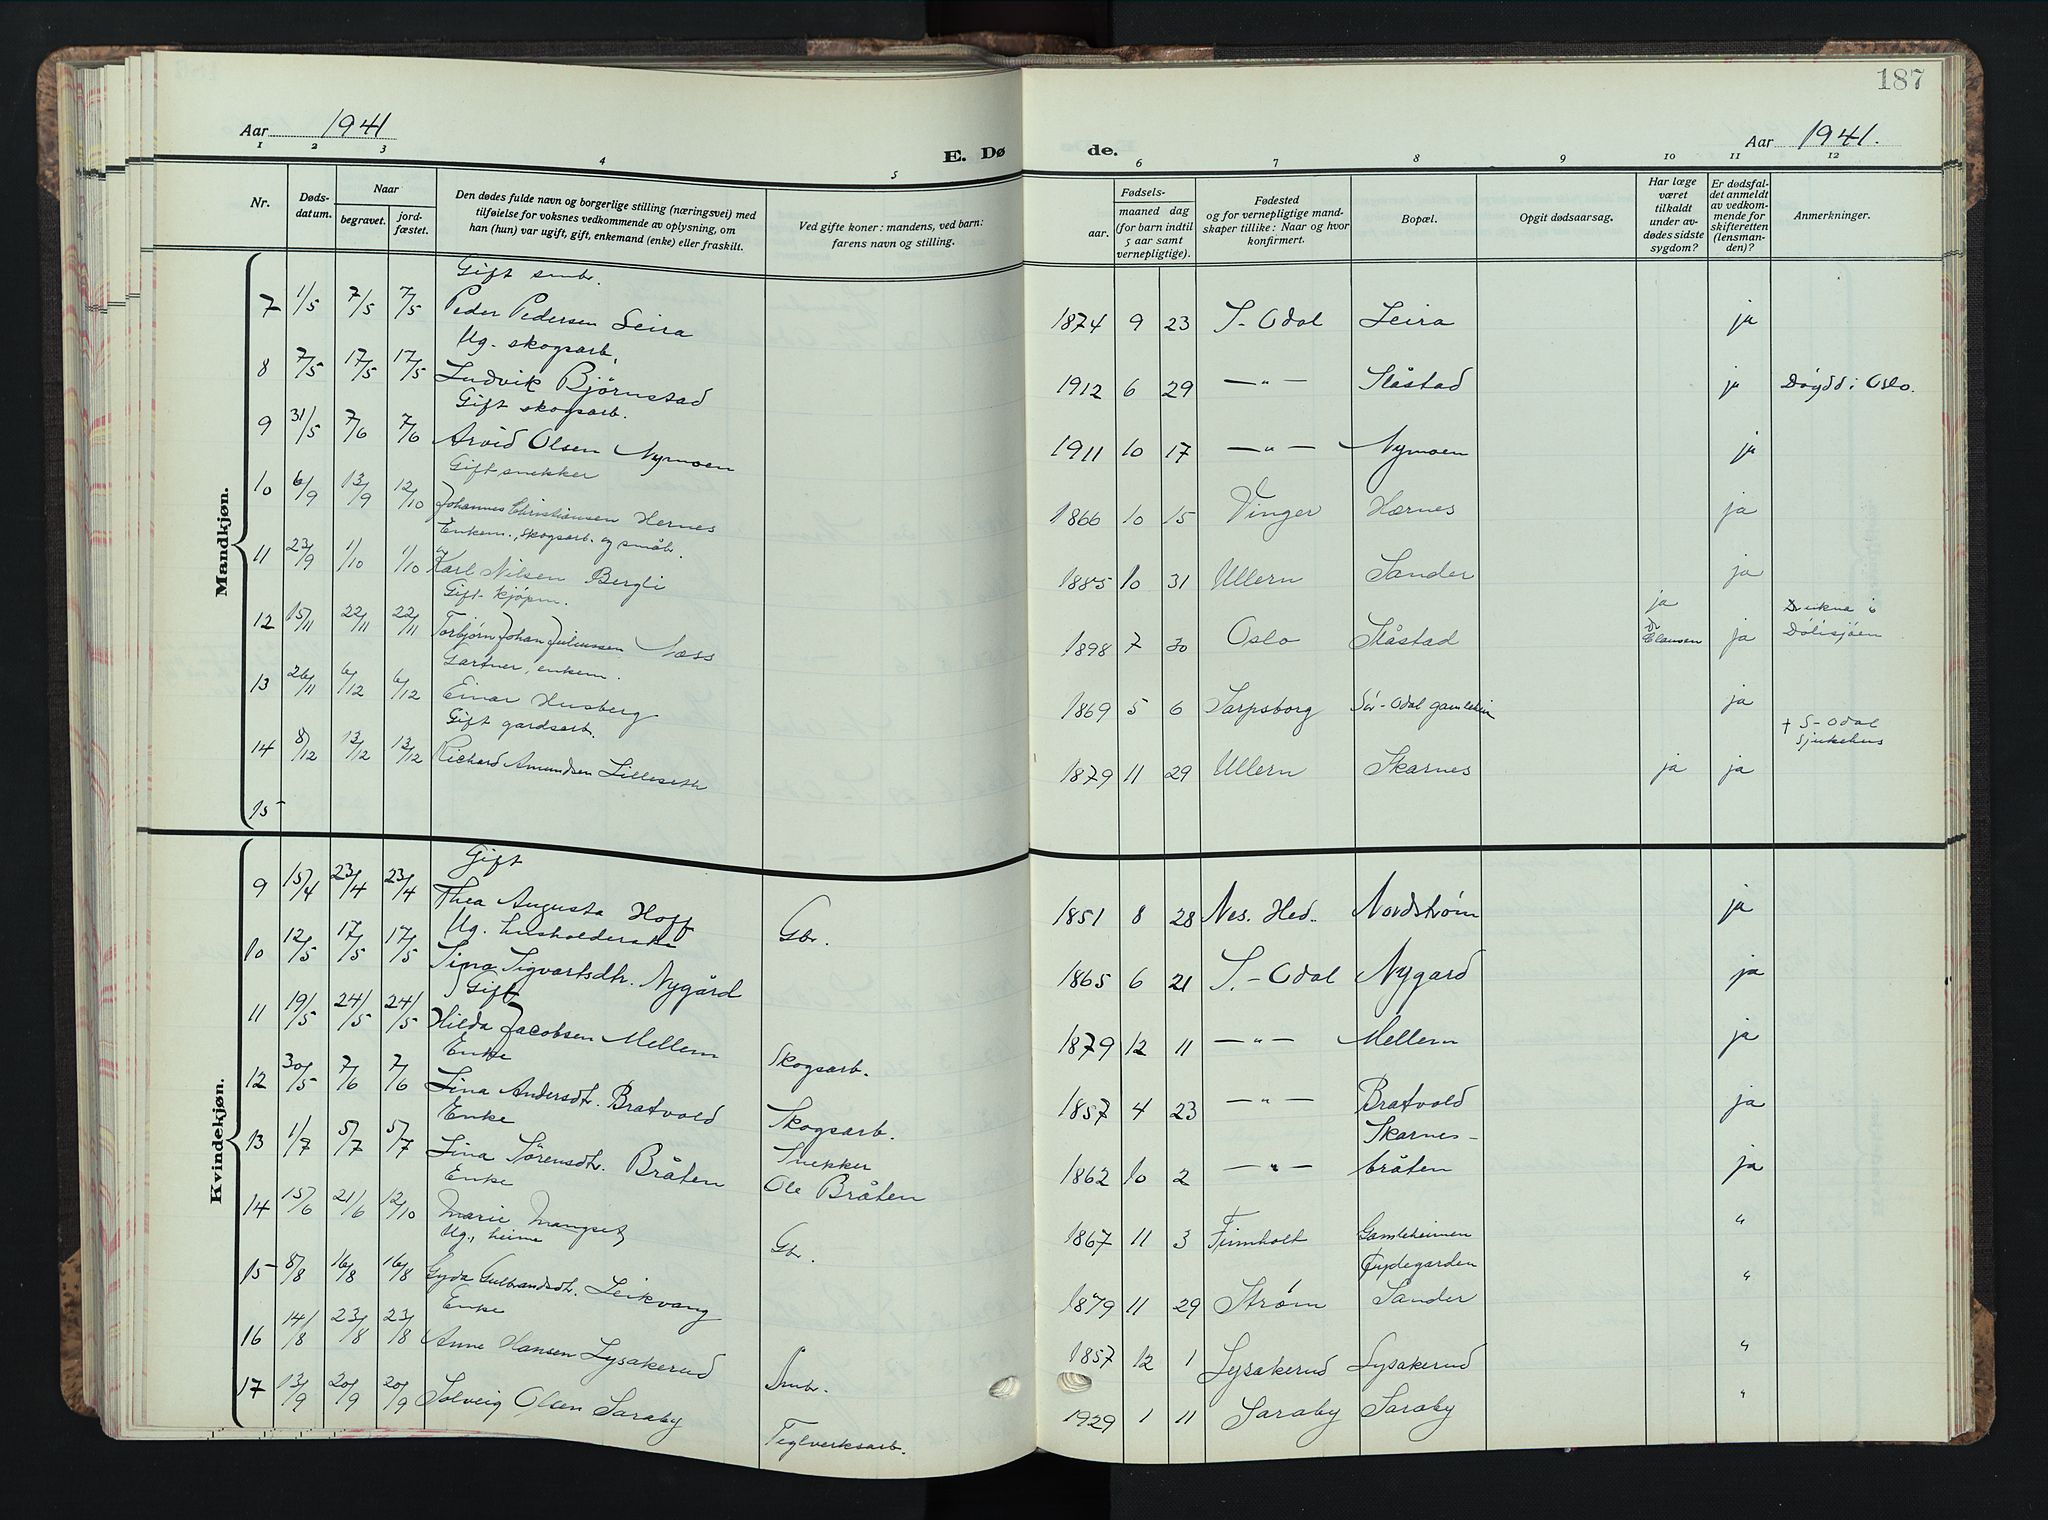 187
Aar 1941
E. Dø
de.
Aar 1941.
1 2 3 4 5
6 7 8 9 10 11 12
Nr.
Døds-
datum.
Naar
begravet.
jord-
fæstet.
Den dødes fulde navn og borgerlige stilling (næringsvei) med
tilføielse for voksnes vedkommende av oplysning, om
han (hun) var ugift, gift, enkemand (enke) eller fraskilt.
Ved gifte koner: mandens, ved barn:
farens navn og stilling.
Fødsels-
aar.
maaned dag
(for barn indtil
5 aar samt
vernepligtige).
Fødested
og for vernepligtige mand-
skaper tillike: Naar og hvor
konfirmert.
Bopæl.
Opgit dødsaarsag.
Har læge
været
tilkaldt
under av-
dødes sidste
sygdom?
Er dødsfal-
det anmeldt
av vedkom-
mende for
skifteretten
(lensman-
den)?
Anmerkninger.
Mandkjøn.
Gift smbr.
7 1/5 7/5 7/5 Peder Pedersen Leira 1874 9 23 S-Odal Leira ja
Ug. skogsarb.
8 7/5 17/5 17/5 Ludvik Bjørnstad 1912 6 29 —"— Slåstad ja Døydd i Oslo.
Gift skogsarb.
9 31/5 7/6 7/6 Arvid Olsen Nymoen 1911 10 17 —"— Nymoen ja
Gift snekker
10 6/9 13/9 12/10 Johannes Christiansen Hernes 1866 10 15 Vinger Hærnes ja
Enkem., skogsarb. og småbr.
11 23/9 1/10 1/10 Karl Nilsen Bergli 1885 10 31 Ullern Sander ja
Gift kjøpm.
12 15/11 22/11 22/11 Torbjørn Johan Juliussen Næss 1898 7 30 Oslo Slåstad ja Dr Clausen ja Drukna i Dølisjøen
Gartner, enkem.
13 26/11 6/12 6/12 Einar Husberg 1869 5 6 Sarpsborg Sør-Odal gamleheim ja
Gift gardsarb.
14 8/12 13/12 13/12 Richard Amundsen Lilleseth 1879 11 29 Ullern Skarnes ja ja + S-Odal Sjukehus
15
Kvindekjøn.
Gift
9 15/4 23/4 23/4 Thea Augusta Hoff Gbr. 1851 8 28 Nes. Hed. Nordstrøm ja
Ug. husholderske
10 12/5 17/5 17/5 Sina Sigvartsdtr. Nygård 1865 6 21 S.-Odal Nygard ja
Gift
11 19/5 24/5 24/5 Hilda Jacobsen Mellem Skogsarb. 1879 12 11 —"— Mellem ja
Enke
12 30/5 7/6 7/6 Lina Andersdtr. Bratvold Skogsarb. 1857 4 23 —"— Bratvold ja
Enke
13 1/7 5/7 5/7 Lina Sørensdtr. Bråten Snekker Ole Bråten 1862 10 2 —"— Skarnes-bråten ja
Enke
14 15/6 21/6 12/10 Marie Mangset Gbr. 1867 11 3 Finnholt Gamleheimen "
Ug., heime
15 8/8 16/8 16/8 Gyda Gulbrandsdtr. Leikvang 1879 11 29 Strøm Sander "
Enke
16 14/8 23/8 23/8 Anne Hansen Lysakerud Smbr. 1857 12 1 Lysakerud Lysakerud "
17 13/9 20/9 20/9 Solveig Olsen Saraby Teglverksarb. 1929 1 11 Saraby Saraby "